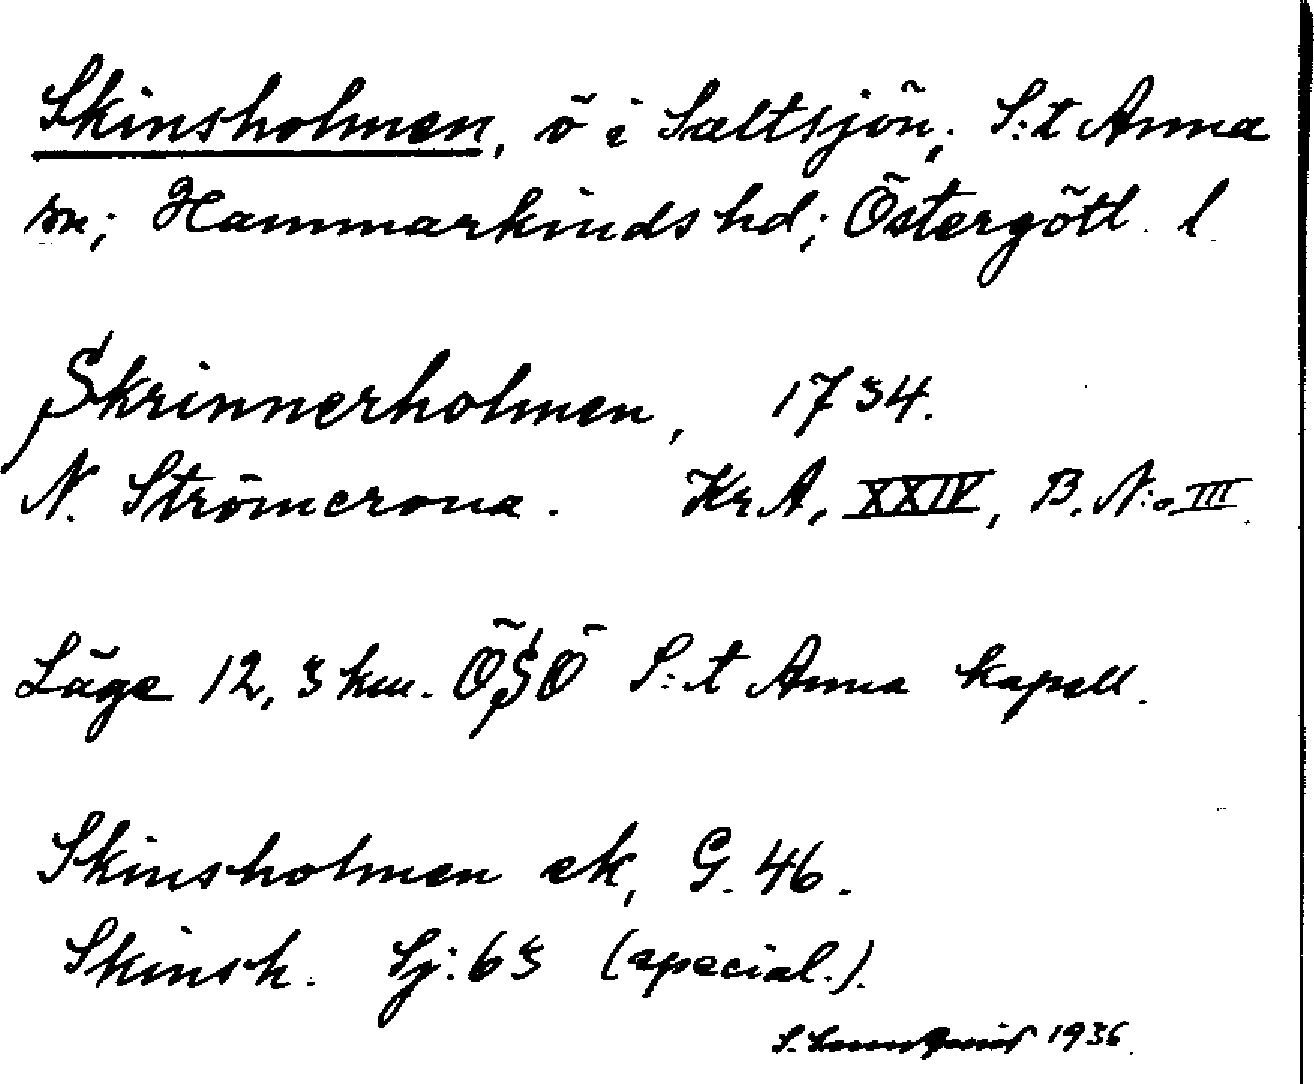 Skinsholmen, ö i Saltsjön; S:t Anna
sn; Hammarkinds hd; Östergötl. l.
Skrinnerholmen, 1734.
N. Strömcrona. Kr.A, XXIV, B. N:o III.
Läge 12,3 km. ÖSÖ S:t Anna kapell.
Skinsholmen ek, G. 46.
Skinsh. Sj: 63 (special.).
S. 1936.